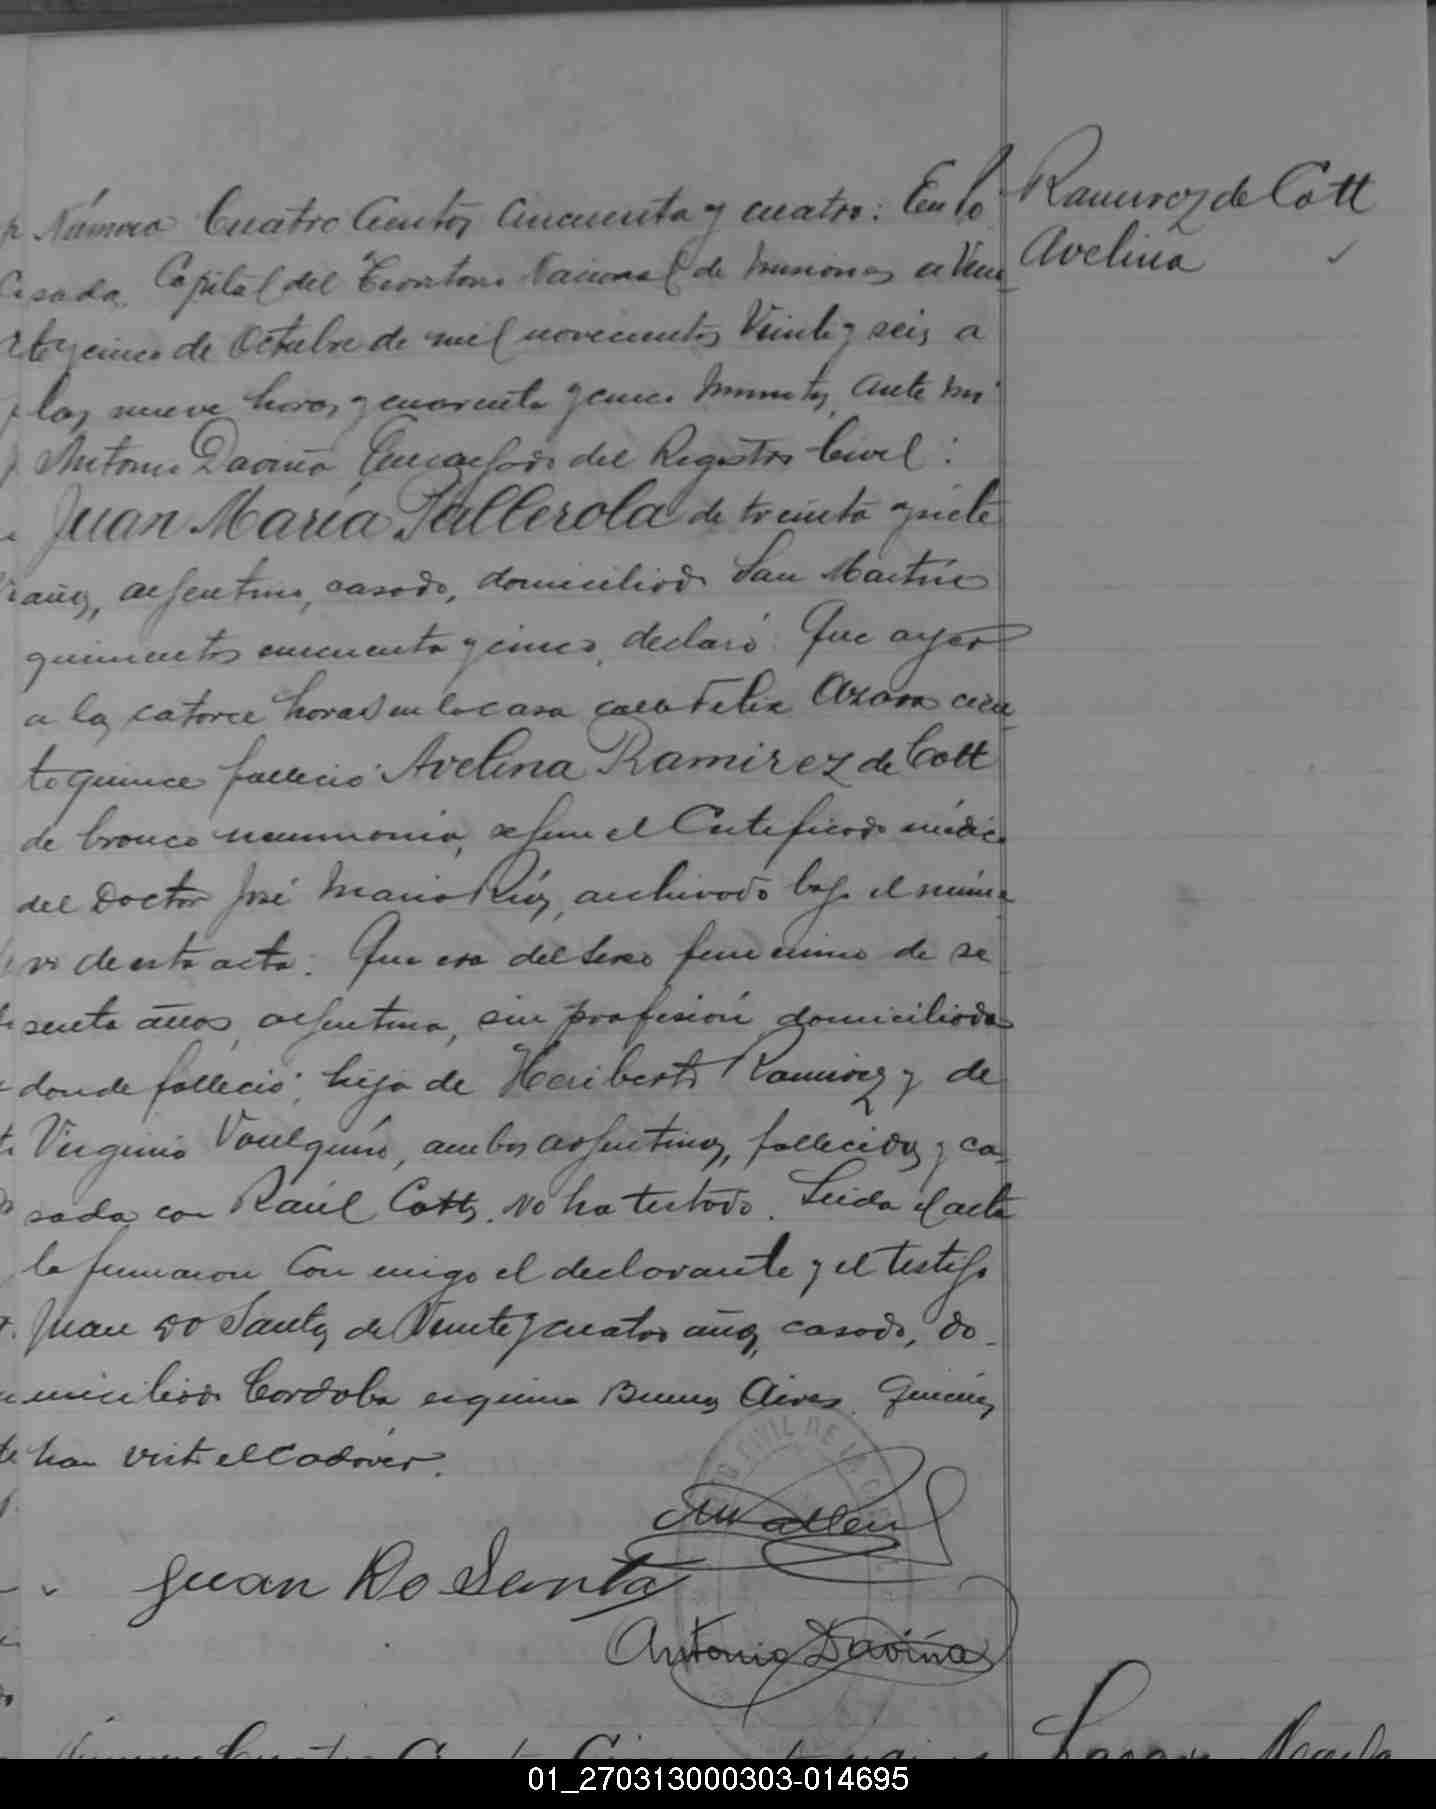 Número Cuatro Cientos Cincuenta y cuatro: En Po
sada, Capital del Territorio Nacional de Misiones a Vein
te y cinco de Octubre de mil novecientos Veinte y seis a
las nueve horas y cuarenta y cinco minutos, ante mi
Antonio Daviña Encargado del Registro Civil:
Juan María Pallerola de treinta y siete
años, argentino, casado, domiciliado San Martín
quinientos cincuenta y cinco, declaró: Que ayer
a las catorce horas en la casa calle Felix Azara cien
to quince falleció Avelina Ramirez de Cott
de bronco neumonia, segun el Certificado médico
del Doctor José Maria, archivado bajo el núme
ro de esta acta: Que era del sexo femenino de se
senta años, argentina, sin profesión domiciliada
donde falleció; hija de Heriberto Ramirez y de
Virginia, ambos argentinos, fallecidos y ca
sada con Raúl Cott. No ha testado. Leida el acta
la firmaron con migo el declarante y el testigo
Juan Do Santos de Veinte y cuatro años, casado, do
miciliado Cordoba esquina Buenos Aires. Quienes
han visto el cadáver.
Juan Do Santo
Antonio Daviña
Ramirez de Cott
Avelina
01_270313000303-014695